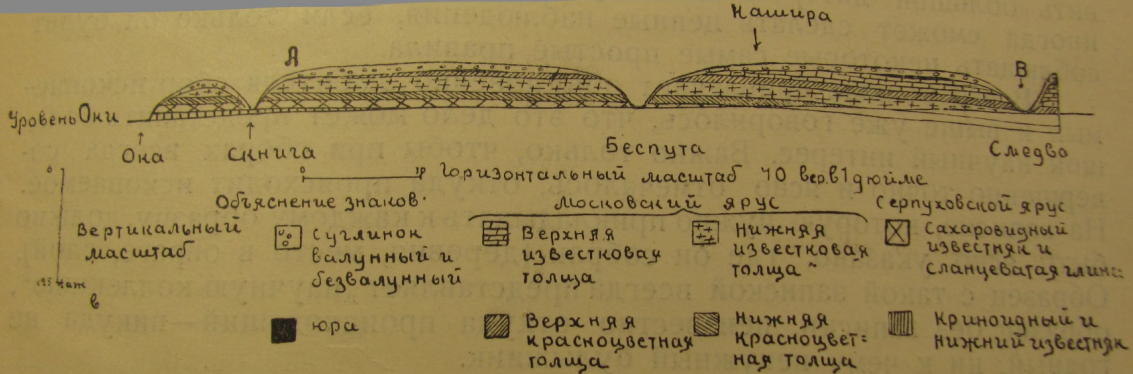 Кашира
А
В
Уровень Оки
Ока
Скнига
Беспута
Смедва
Горизонтальный масштаб 40 вер. в 1 дюйме
Объяснение знаков.
Московский ярус
Серпуховской ярус
0
Вертикальный
масштаб
Суглинок
валунный и
безвалунный
Верхняя
известковая
толща
Нижняя
известковая
толща
Сахаровидный
известняк и
сланцеватая глина
юра
Верхняя
красноцветная
толща
Нижняя
красноцвет=
ная толща
Криноидный и
нижний известняк